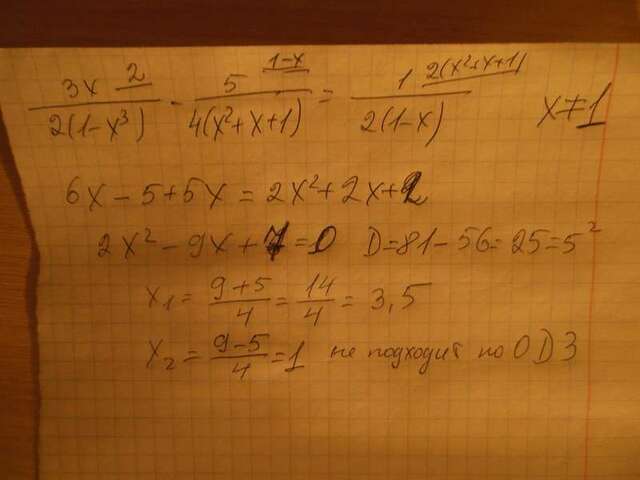 3x 2 / 2(1-x³) - 5 1-x / 4(x²+x+1) = 1 2(x²+x+1) / 2(1-x) x≠1
6x - 5+5x = 2x²+2x+2
2x² - 9x + 7 = 0 D=81-56=25=5²
x₁ = 9+5/4 = 14/4 = 3,5
x₂ = 9-5/4 = 1 не подходит по ОДЗ